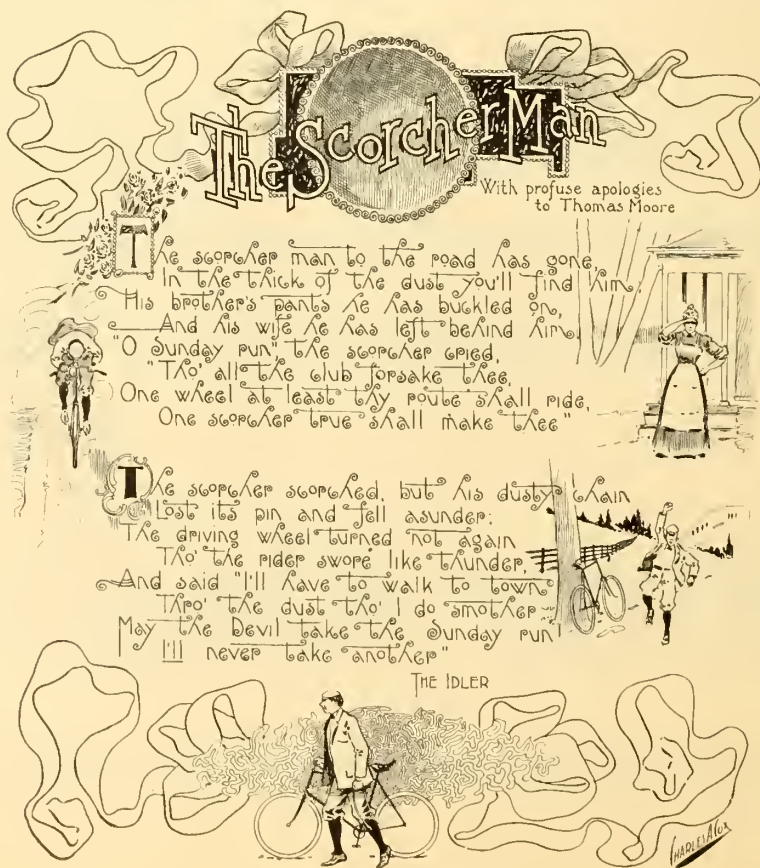 The Scorcher Man
With profuse apologies
to Thomas Moore
The scorcher man to the road has gone,
In the thick of the dust you'll find him.
His brother's pants he has buckled on,
And his wife he has left behind him.
"O Sunday run", the scorcher cried,
"Tho' all the club forsake thee,
One wheel at least thy route shall ride,
One scorcher true shall make thee"
The scorcher scorched, but his dusty chain
Lost its pin and fell asunder;
The driving wheel turned not again
Tho' the rider swore like thunder,
And said "I'll have to walk to town
Thro' the dust tho' I do smother
May the Devil take the Sunday run!
I'll never take another"
The Idler
Charles A Cox